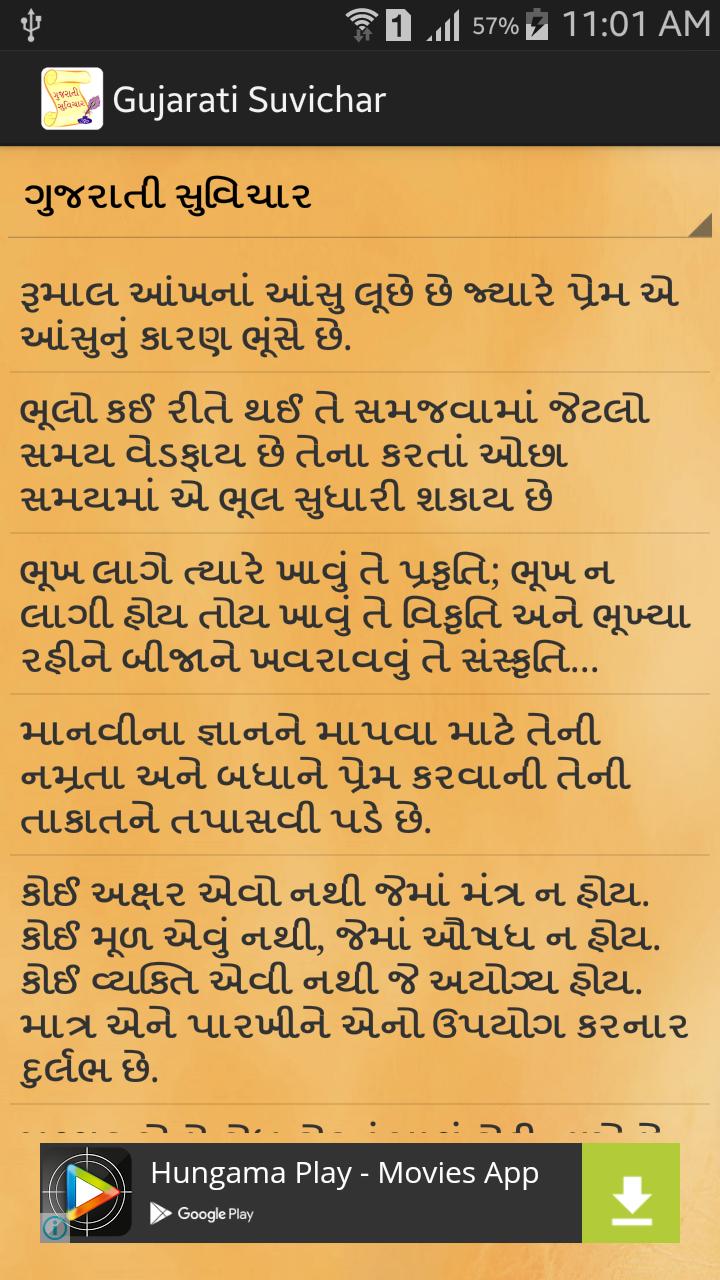 1
57%
11:01 AM
ગુજરાતી
સુવિચાર
Gujarati Suvichar
ગુજરાતી સુવિચાર
રૂમાલ આંખનાં આંસુ લૂછે છે જ્યારે પ્રેમ એ
આંસુનું કારણ ભૂંસે છે.
ભૂલો કઈ રીતે થઈ તે સમજવામાં જેટલો
સમય વેડફાય છે તેના કરતાં ઓછા
સમયમાં એ ભૂલ સુધારી શકાય છે
ભૂખ લાગે ત્યારે ખાવું તે પ્રકૃતિ; ભૂખ ન
લાગી હોય તોય ખાવું તે વિકૃતિ અને ભૂખ્યા
રહીને બીજાને ખવરાવવું તે સંસ્કૃતિ...
માનવીના જ્ઞાનને માપવા માટે તેની
નમ્રતા અને બધાને પ્રેમ કરવાની તેની
તાકાતને તપાસવી પડે છે.
કોઈ અક્ષર એવો નથી જેમાં મંત્ર ન હોય.
કોઈ મૂળ એવું નથી, જેમાં ઔષધ ન હોય.
કોઈ વ્યક્તિ એવી નથી જે અયોગ્ય હોય.
માત્ર એને પારખીને એનો ઉપયોગ કરનાર
દુર્લભ છે.
Hungama Play - Movies App
Google Play